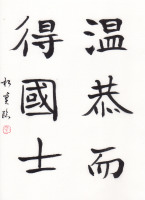 温恭而
得國士